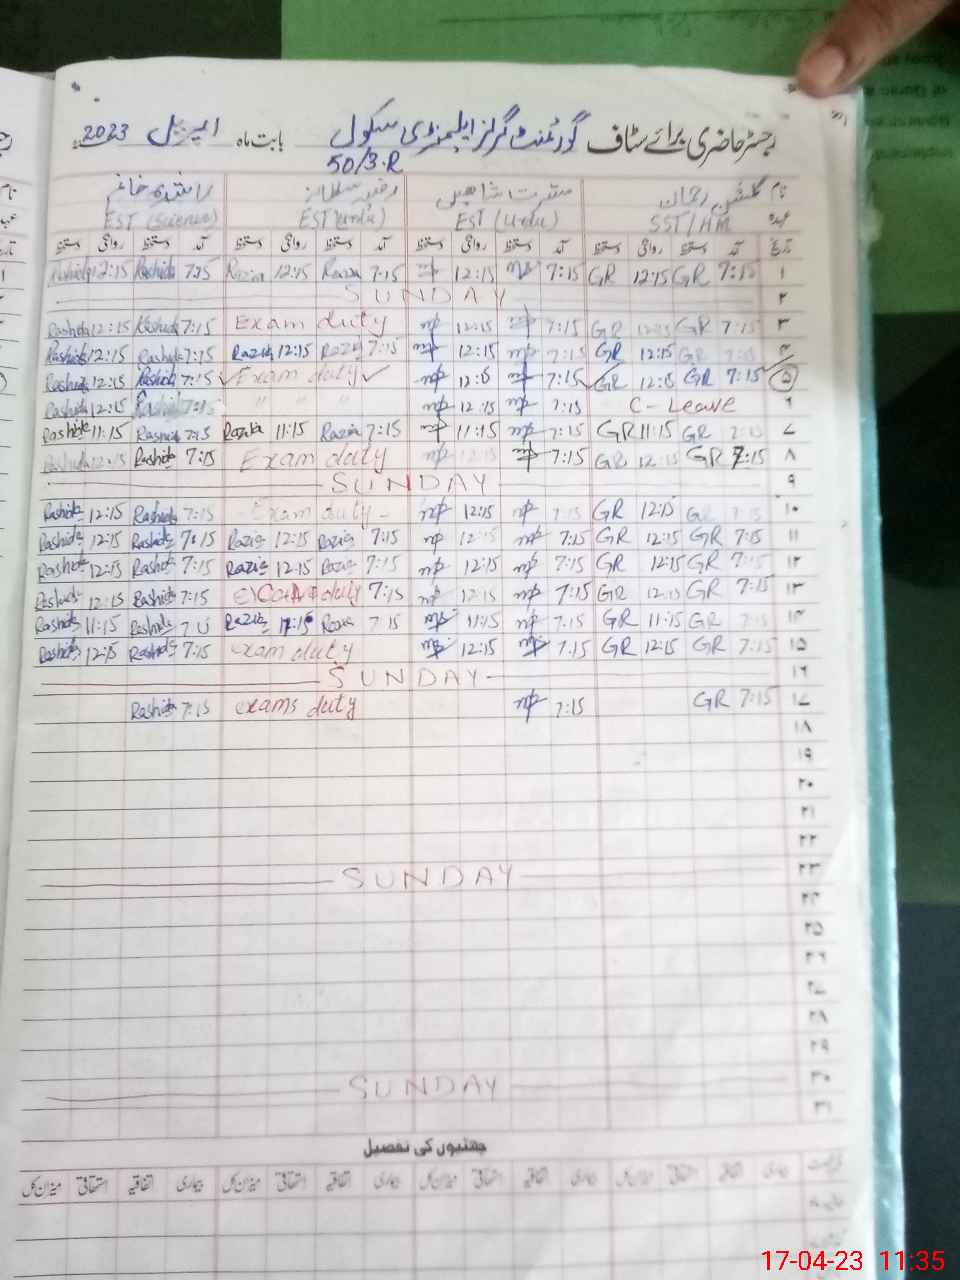 رجسٹر حاضری برائے سٹاف گورنمنٹ گرلز ایلیمنٹری سکول بابت ماہ اپریل 2023
50/3.R
نام گلشن رحمان مسرت شاہین رضیہ سلطانہ راشدہ خانم
عہدہ SST/HM EST (Urdu) EST (Urdu) EST (Science)
تاریخ آمد دستخط روانگی دستخط آمد دستخط روانگی دستخط آمد دستخط روانگی دستخط آمد دستخط روانگی دستخط
۱ 7:15 GR 12:15 GR 7:15 12:15 7:15 Razia 12:15 Razia 7:15 Rashida 12:15 Rashida
۲ SUNDAY
۳ 7:15 GR 12:15 GR 7:15 12:15 Exam duty 7:15 Rashida 12:15 Rashida
۴ 7:15 GR 12:15 GR 7:15 12:15 7:15 Razia 12:15 Razia 7:15 Rashida 12:15 Rashida
۵ 7:15 GR 12:15 GR 7:15 12:15 Exam duty 7:15 Rashida 12:15 Rashida
۶ C-Leave 7:15 12:15 " " " 7:15 Rashida 12:15 Rashida
۷ 7:15 GR 11:15 GR 7:15 11:15 7:15 Razia 11:15 Razia 7:15 Rashida 11:15 Rashida
۸ 7:15 GR 12:15 GR 7:15 12:15 Exam duty 7:15 Rashida 12:15 Rashida
۹ SUNDAY
۱۰ 7:15 GR 12:15 GR 7:15 12:15 - Exam duty - 7:15 Rashida 12:15 Rashida
۱۱ 7:15 GR 12:15 GR 7:15 12:15 7:15 Razia 12:15 Razia 7:15 Rashida 12:15 Rashida
۱۲ 7:15 GR 12:15 GR 7:15 12:15 7:15 Razia 12:15 Razia 7:15 Rashida 12:15 Rashida
۱۳ 7:15 GR 12:15 GR 7:15 12:15 7:15 duty 7:15 Rashida 12:15 Rashida
۱۴ 7:15 GR 11:15 GR 7:15 11:15 7:15 Razia Razia 7:15 Rashida 11:15 Rashida
۱۵ 7:15 GR 12:15 GR 7:15 12:15 exam duty 7:15 Rashida 12:15 Rashida
۱۶ SUNDAY
۱۷ 7:15 GR 7:15 exams duty 7:15 Rashida
۱۸
۱۹
۲۰
۲۱
۲۲
۲۳ SUNDAY
۲۴
۲۵
۲۶
۲۷
۲۸
۲۹
۳۰ SUNDAY
۳۱
چھٹیوں کی تفصیل
بیماری اتفاقیہ استحقاقی میزان کل بیماری اتفاقیہ استحقاقی میزان کل بیماری اتفاقیہ استحقاقی میزان کل بیماری اتفاقیہ استحقاقی میزان کل
17-04-23 11:35